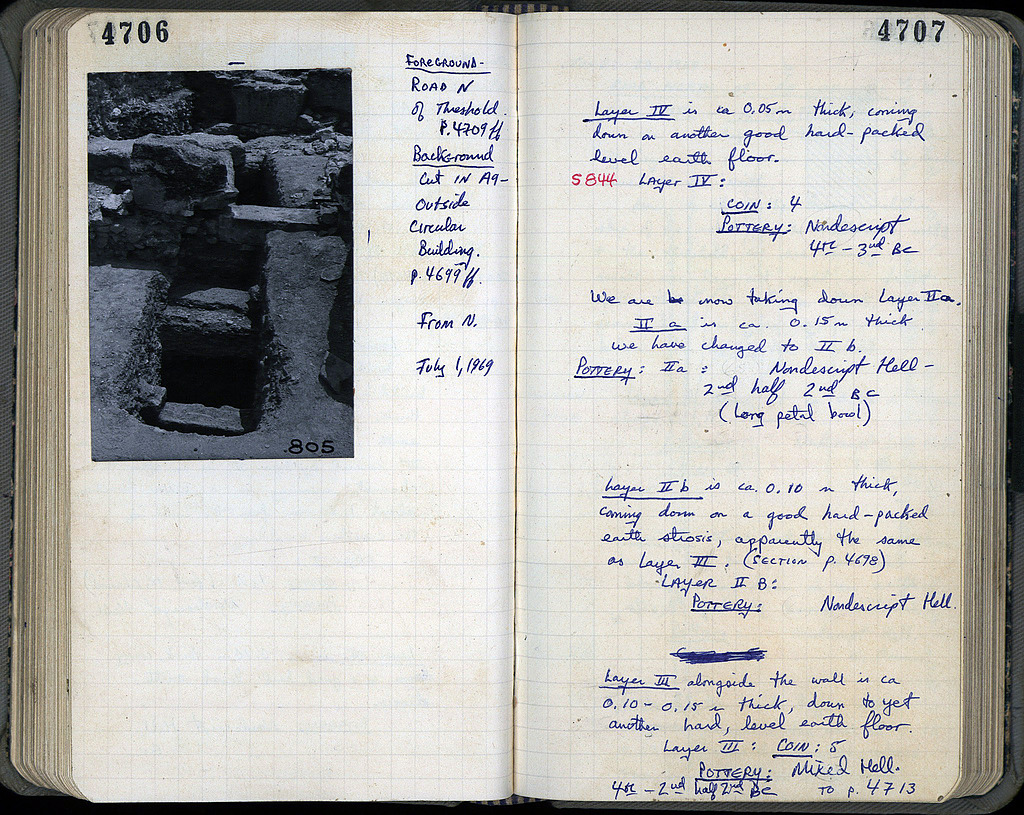 4706
FOREGROUND-
ROAD N
of Threshold.
P.4709 ff
Background
Cut IN A9-
Outside
Circular
Building.
p.4699 ff.
From N.
July 1, 1969
805
4707
Layer IV is ca 0.05 m thick, coming
down on another good hard-packed
level earth floor.
S844 LAyer IV:
COIN: 4
POTTERY: Nondescript
4th - 3rd BC
We are now taking down Layer IIa.
II a is ca. 0.15 m thick
we have changed to II b.
POTTERY: IIa: Nondescript Hell-
2nd half 2nd BC
(Long petal bowl)
Layer II b is ca. 0.10 m thick,
coming down on a good hard-packed
earth strosis, apparently the same
as Layer III. (SECTION p. 4698)
LAYER II B:
POTTERY: Nondescript Hell.
Layer III alongside the wall is ca
0.10 - 0.15 m thick, down to yet
another hard, level earth floor.
Layer III: COIN: 5
POTTERY: Mixed Hell.
4th - 2nd half 2nd BC TO p. 4713